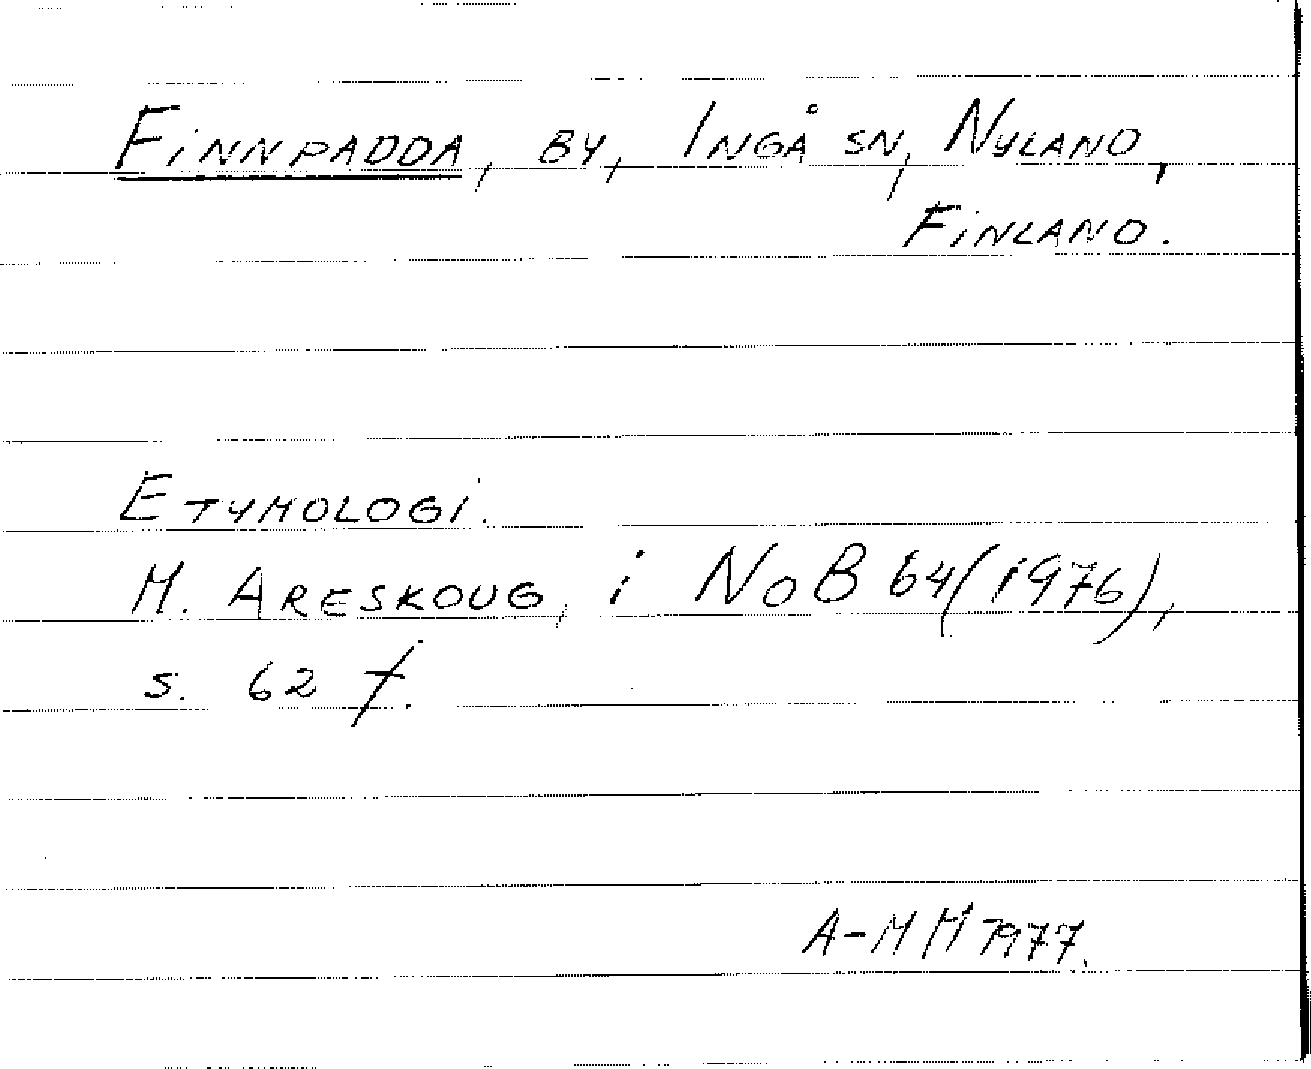 FINNPADDA, BY, INGÅ SN, NYLAND,
FINLAND.
ETYMOLOGI.
H. ARESKOUG, i NoB 64 (1976),
s. 62 f.
A-MH 1977.